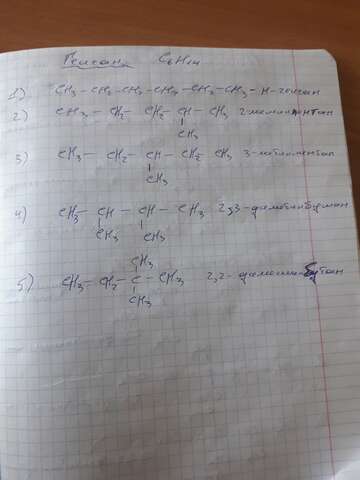 Гексан C6H14
1) CH3-CH2-CH2-CH2-CH2-CH3-Н-гексан
2) CH3- CH2- CH2- CH- CH3 2-метилпентан
CH3
3) CH3- CH2- CH- CH2 CH3 3-метилпентан
CH3
4) CH3- CH- CH- CH3 2,3-диметилбутан
CH3 CH3
CH3
5) CH3- CH2- C- CH3 2,2-диметил-бутан
CH3